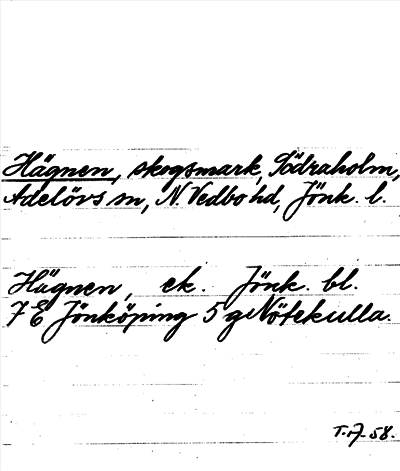 Hägnen, skogsmark, Södraholm,
Adelövs sn, N. Vedbo hd, Jönk. l.
Hägnen, ek. Jönk. bl.
7 E Jönköping 5 g Nötekulla.
58.